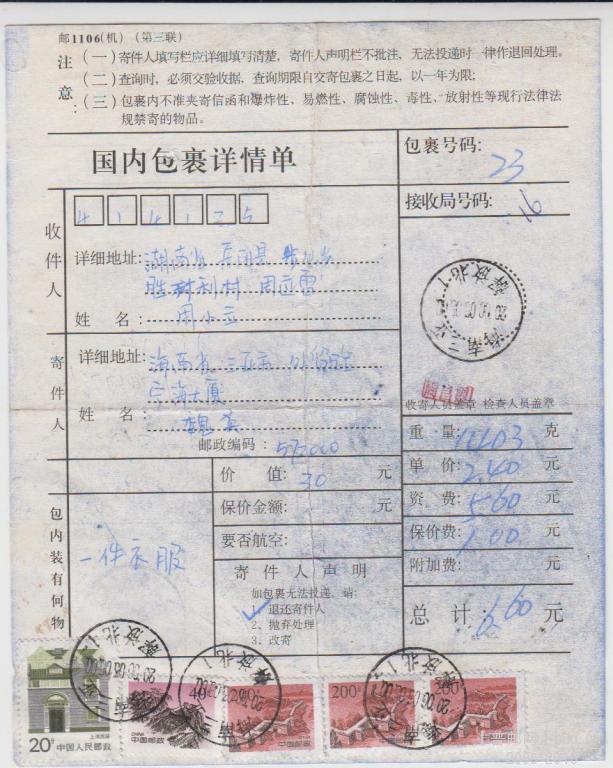 邮1106(机) (第三联)
注意:
(一)寄件人填写栏应详细填写清楚,寄件人声明栏不批注,无法投递时一律作退回处理。
(二)查询时,必须交验收据,查询期限自交寄包裹之日起,以一年为限;
(三)包裹内不准夹寄信函和爆炸性、易燃性、腐蚀性、毒性、放射性等现行法律法
规禁寄的物品。
国内包裹详情单
包裹号码:
23
接收局号码:
16
收件人
414125
详细地址: 湖南省
胜利村
姓 名: 周小立
寄件人
详细地址: 海南省三亚市
大厦
姓 名: 魏
邮政编码: 572000
收寄人员盖章 检查人员盖章
重 量: 1403 克
单 价: 2.40 元
资 费: 5.60 元
保价费: 1.00 元
附加费: 元
总 计: 6.60 元
价 值: 30 元
保价金额: 元
要否航空:
包内装有何物
一件衣服
寄件人声明
如包裹无法投递,请:
1. 退还寄件人
2. 抛弃处理
3. 改寄
海南三亚
解放北1
20分 中国人民邮政
上海民居
40
CHINA
中国邮政
200
中国邮政
200
中国邮政
200
中国邮政